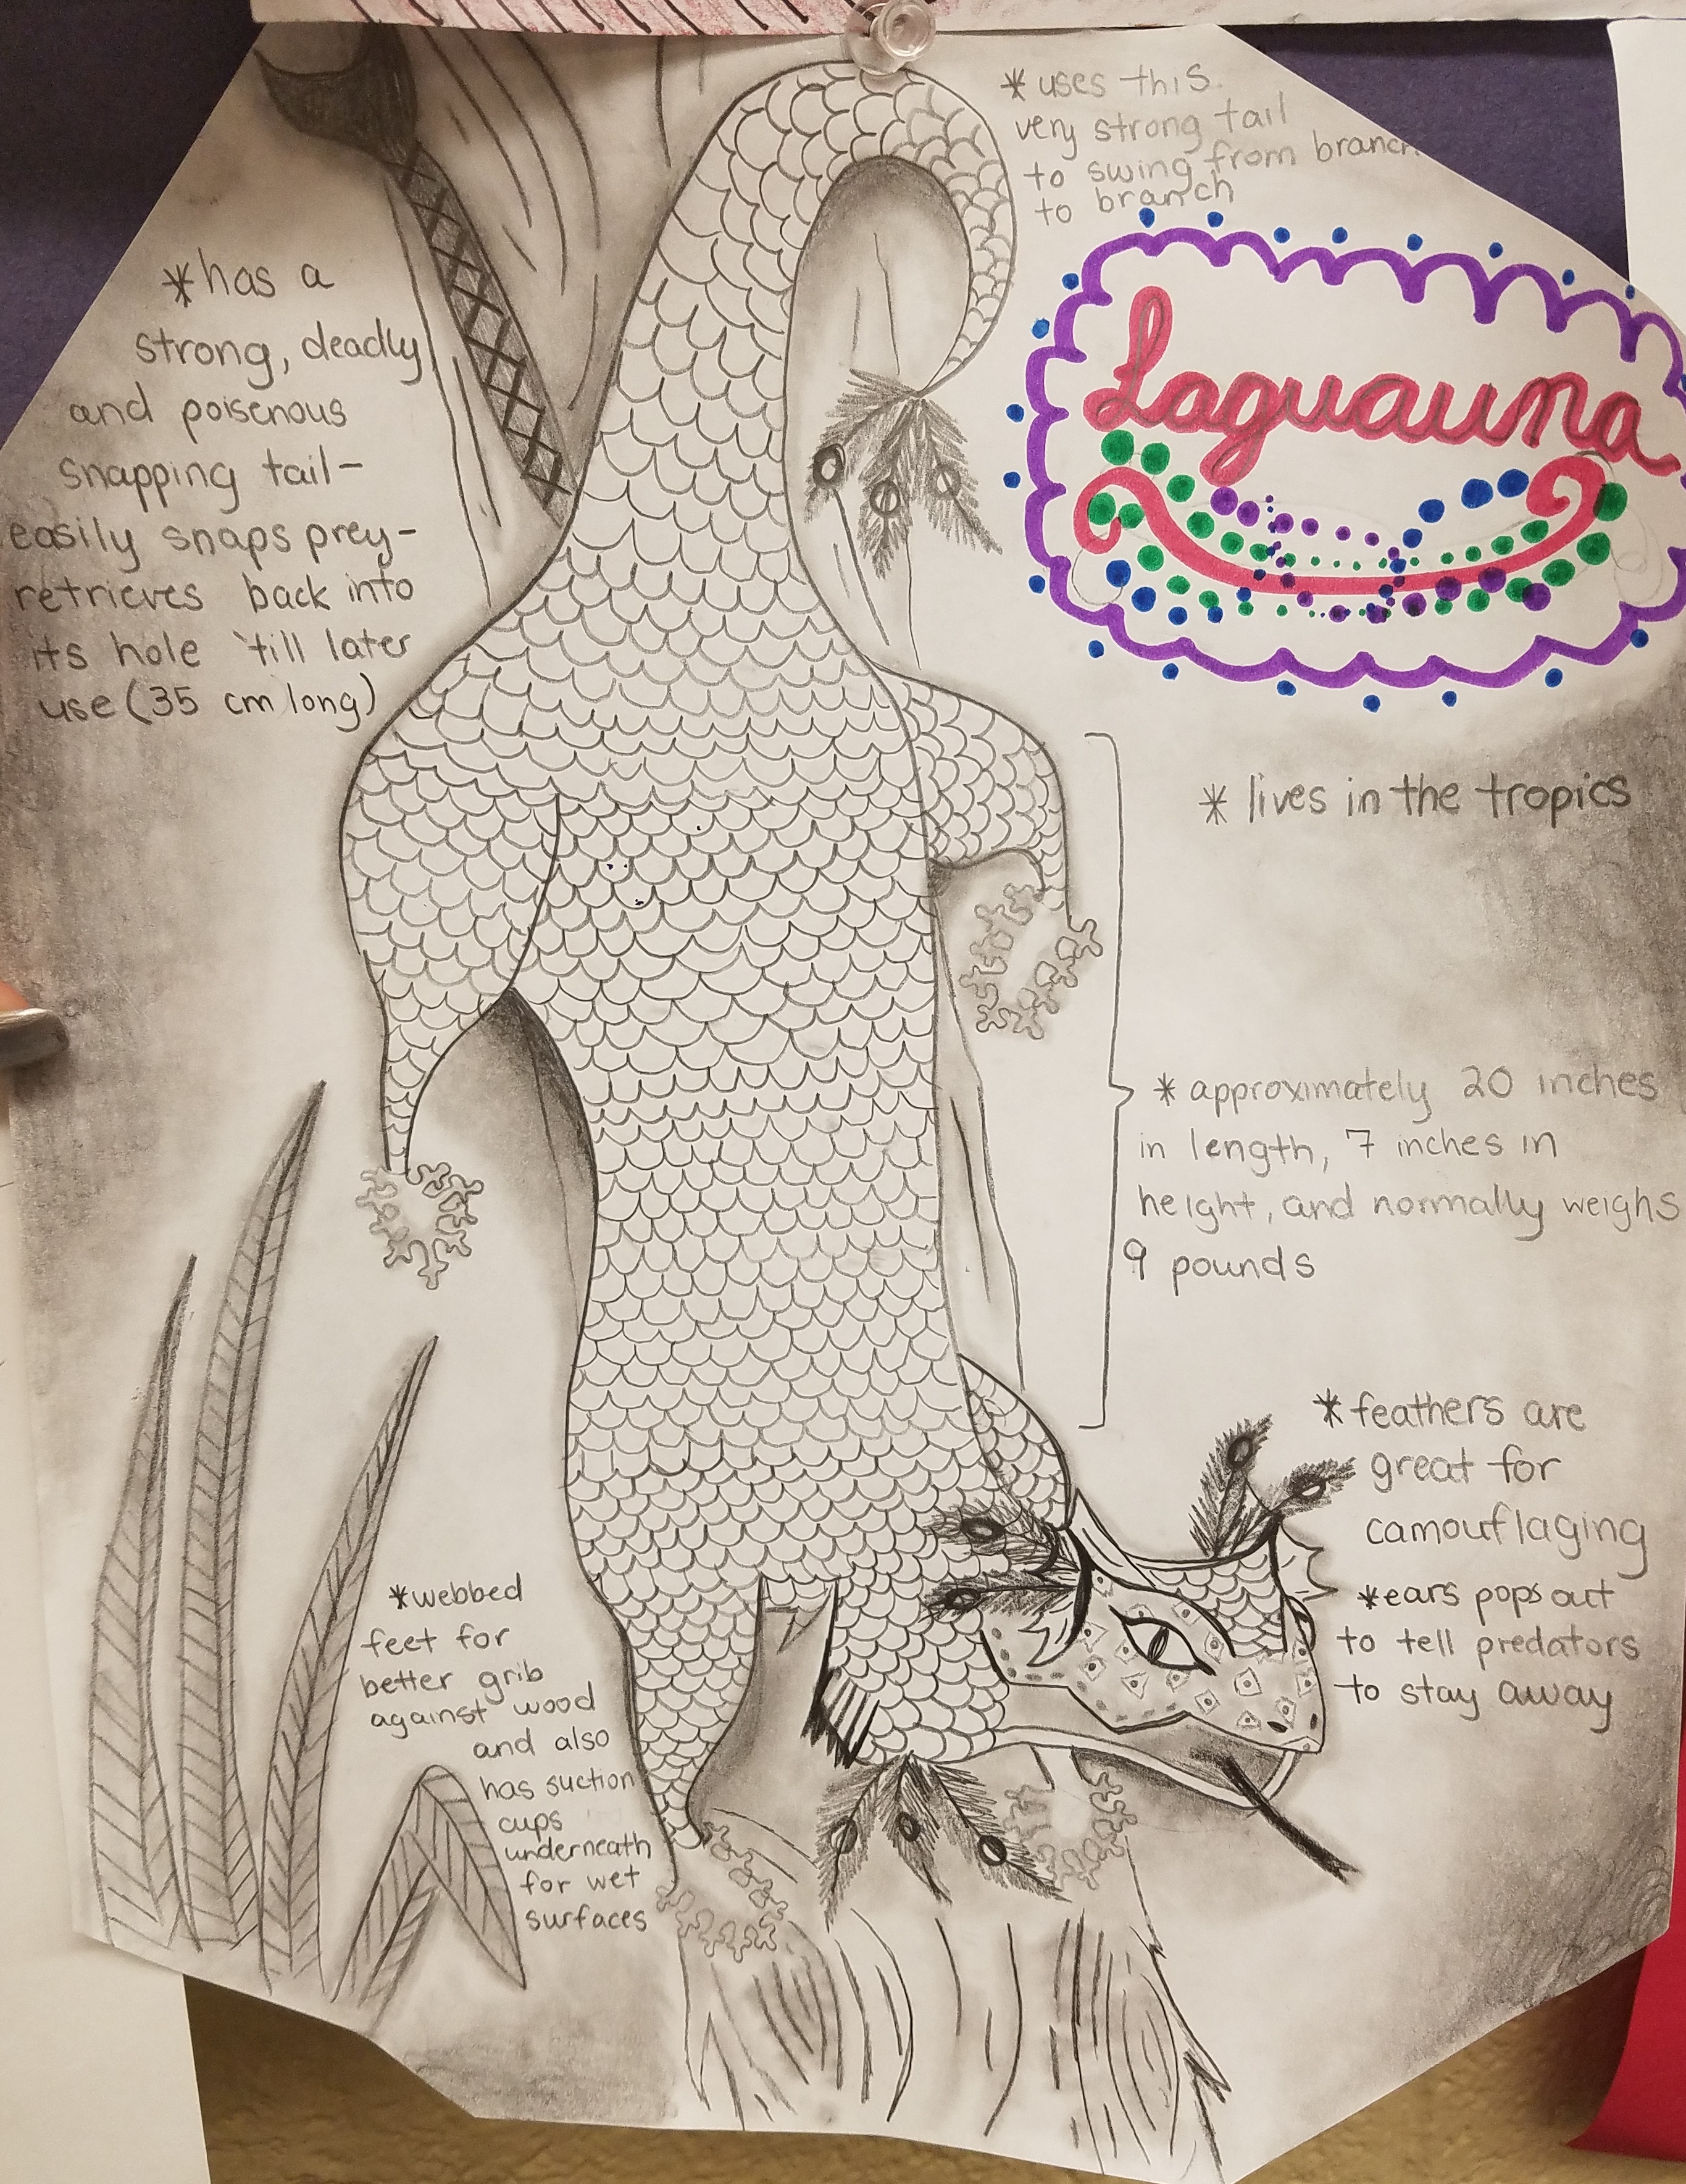 *uses this
very strong tail
to swing from branch
to branch
*has a
strong, deadly
and poisenous
snapping tail-
easily snaps prey-
retrieves back into
its hole 'till later
use (35 cm long)
Laguauna
*lives in the tropics
*approximately 20 inches
in length, 7 inches in
height, and normally weighs
9 pounds
*feathers are
great for
camouflaging
*ears pops out
to tell predators
to stay away
*webbed
feet for
better grib
against wood
and also
has suction
cups
underneath
for wet
surfaces